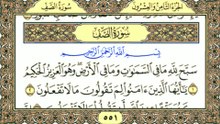 سُورَةُ الصَّفِّ
الجُزْءُ الثَّامِنُ وَالعِشْرُونَ
سُورَةُ الصَّفِّ
بِسْمِ اللَّهِ الرَّحْمَٰنِ الرَّحِيمِ
سَبَّحَ لِلَّهِ مَا فِي السَّمَٰوَٰتِ وَمَا فِي الْأَرْضِ وَهُوَ الْعَزِيزُ الْحَكِيمُ
١ يَٰٓأَيُّهَا الَّذِينَ ءَامَنُوا لِمَ تَقُولُونَ مَا لَا تَفْعَلُونَ ٢
٥٥١